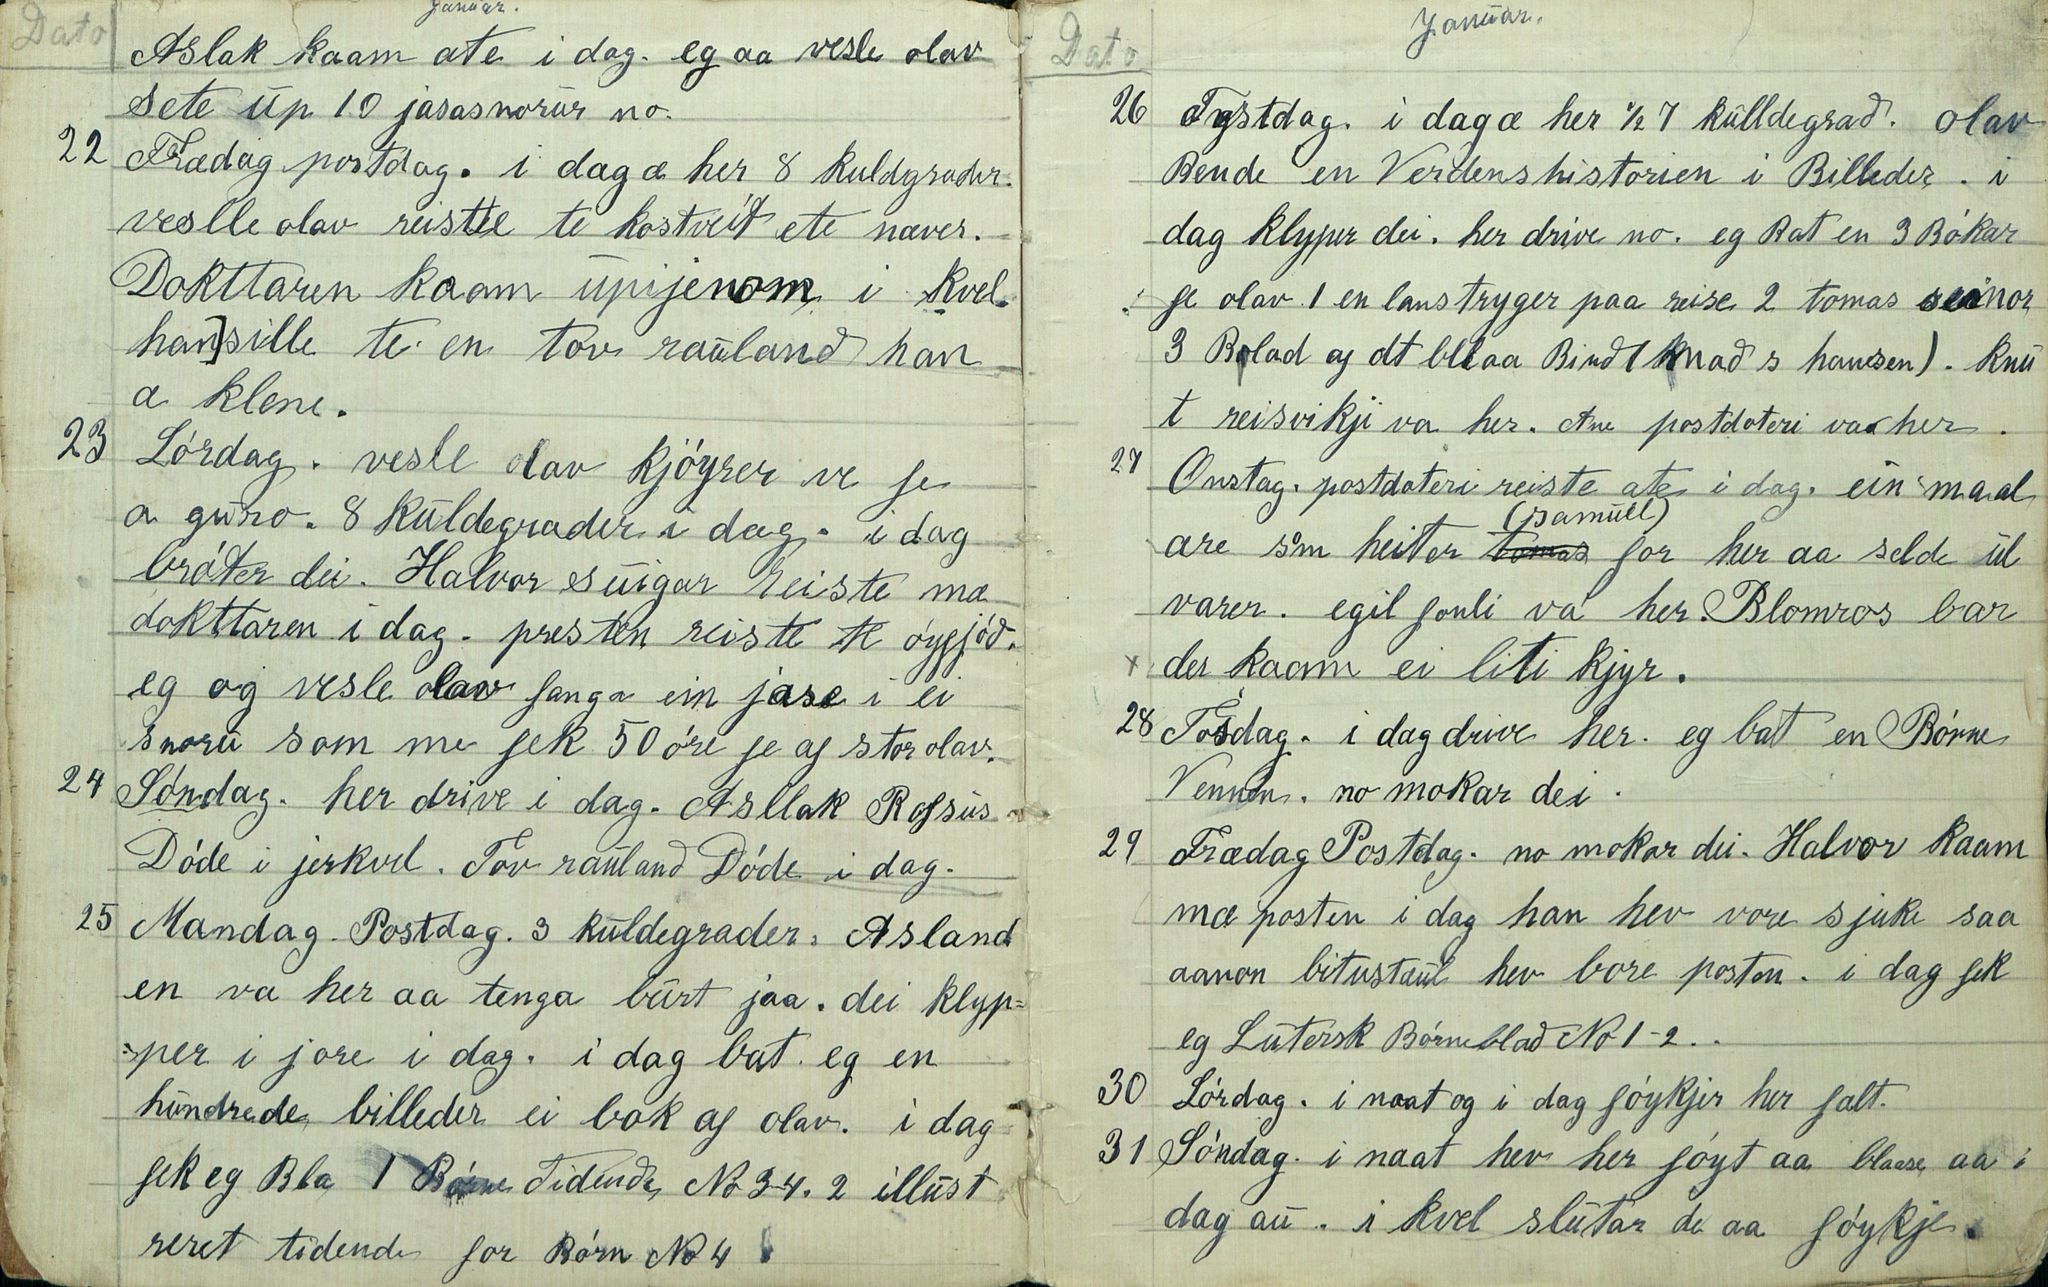 Januar.
Dato
Aslak kaam ate i dag. eg aa vesle olav
sete ŭp 10 jasasnorŭr no.
22 Frædag postdag. i dag æ her 8 kuldgrader.
veslle olav reistte te kostveit ete næver.
Dokttaren kaam ŭpijenom i kvel.
han sille te en tov raŭland han
æ klene.
23 Lórdag. vesle olav kjóyrer ve fe
a gŭro. 8 Kŭldegrader i dag. i dag
bróter dei. Halvor sŭigar reiste mæ
dokttaren i dag. presten reiste te óyfjód.
eg og vesle olav fanga ein jase i ei
snorŭ som me fek 50 óre fe af stor olav.
24 Sóndag. her drive i dag. Asllak Rofsŭs
Dóde i jerkvel. Tov raŭland Dóde i dag.
25 Mandag. Postdag. 3 kŭldegrader. Asland
en va her aa tenga bŭrt jaa. dei klyp=
=per i jore i dag. i dag bat eg en
hŭndrede billeder ei bok af olav. i dag
fek eg Bla 1 Börne Tidende No 3-4. 2 illŭst
reret tidende for Bórn No 4
Januar.
Dato
26 Tystdag. i dag æ her ½ 7 kŭlldegrad. olav
Bende en Verdenshistorien i Billeder. i
dag klyper dei. her drive no. eg Bat en 3 Bókar
fe olav 1 en lanstryger paa reise 2 tomas seinor
3 Bolad af dt bllaa Bind (Knad s hansen). Knŭ
t reisvikji va her. Ane postdoteri va her.
27 Onstag. postdoteri reiste ate i dag. ein maal
(samŭel)
are som heiter tomas for her aa selde ŭl
varer. egil fonli va her. Blomros bar
der kaam ei liti kjyr.
28 Tosdag. i dag drive her. eg bat en Bórne
Vennen. no mokar dei.
29 Frædag Postdag. no mokar dei. Halvor kaam
mæ posten i dag han hev vore sjuke saa
aanon bitustæŭl hev bore posten. i dag fek
eg Lŭtersk Bórneblad No 1-2..
30 Lórdag. i naat og i dag fóykjer her fælt.
31 Sóndag. i naat hev her fóyt aa blaase aa i
dag aŭ. i kvel slŭtar de aa fóykje.